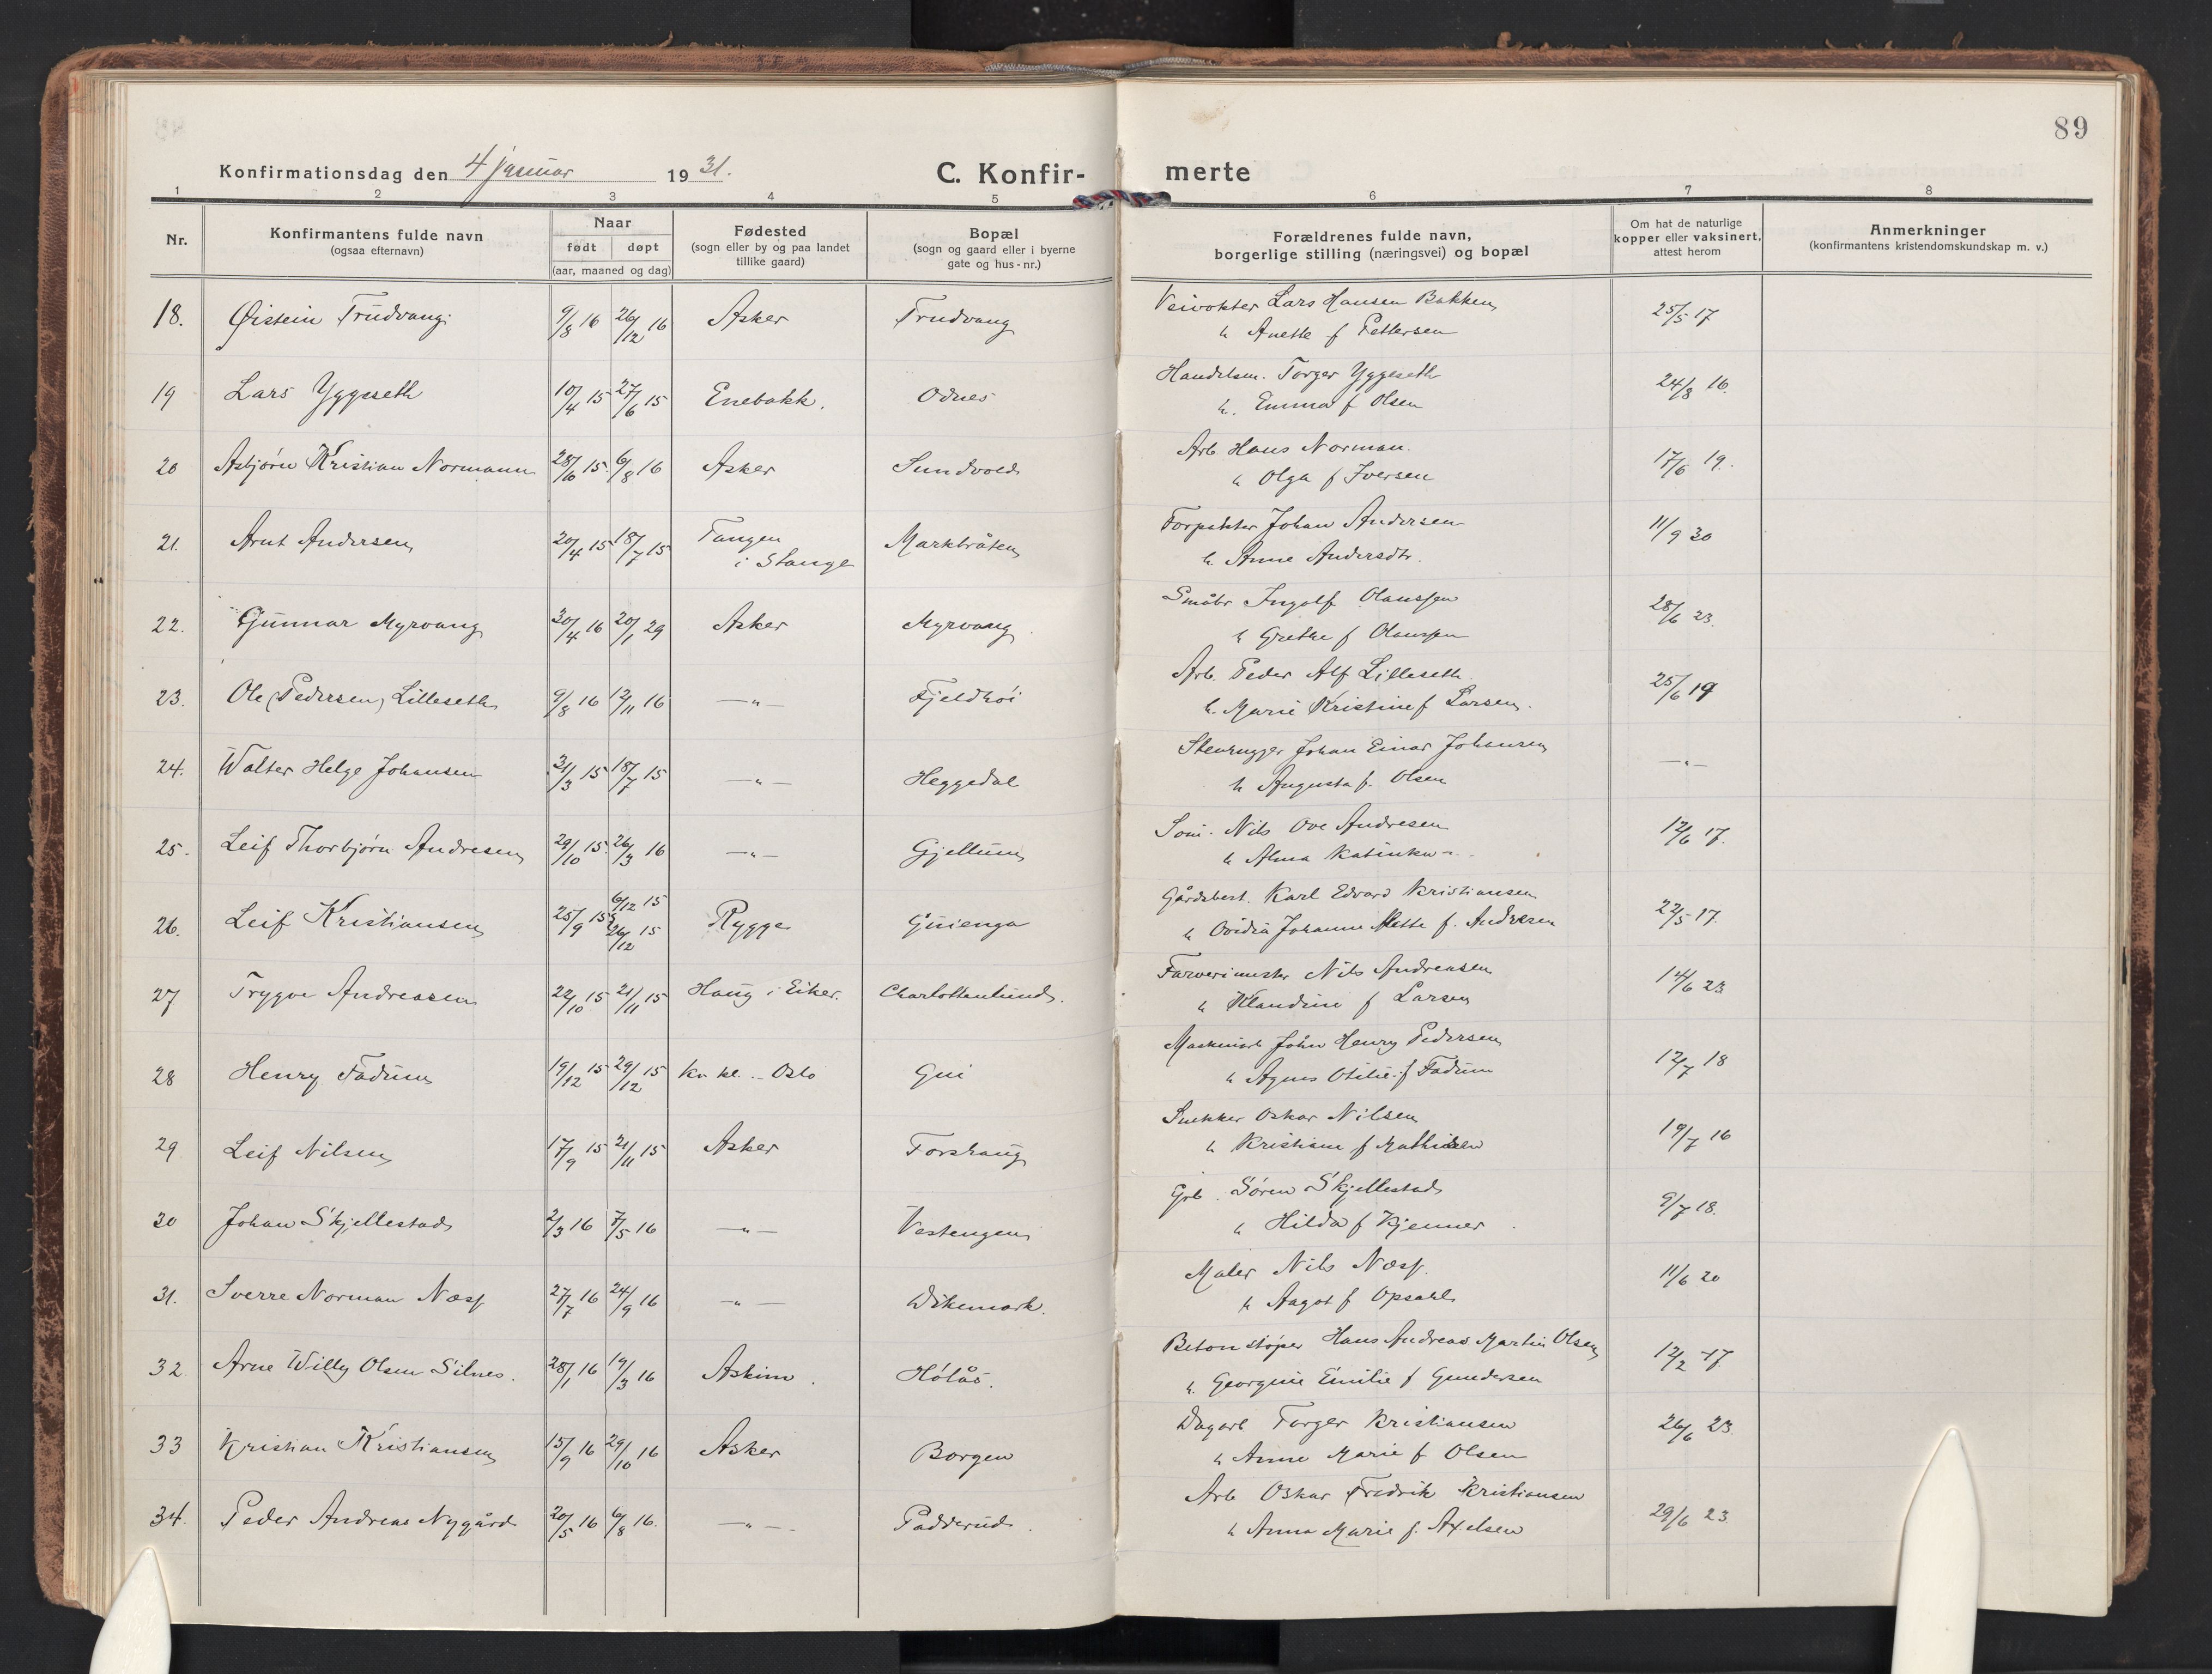 89
Konfirmationsdag den 4 januar 1931.
C. Konfir- merte
1 2 3 4 5 6 7 8
Nr.
Konfirmantens fulde navn
(ogsaa efternavn)
Naar
født døpt
(aar, maaned og dag)
Fødested
(sogn eller by og paa landet
tillike gaard)
Bopæl
(sogn og gaard eller i byerne
gate og hus-nr.)
Forældrenes fulde navn,
borgerlige stilling (næringsvei) og bopæl
Om hat de naturlige
kopper eller vaksinert,
attest herom
Anmerkninger
(konfirmantens kristendomskundskap m. v.)
18. Øistein Trudvang 9/8 16 26/12 16 Asker Trudvang Veivokter Lars Hansen Bakken 25/5 17
h Anette f Pettersen
19 Lars Yggeseth 10/4 15 27/6 15 Enebakk. Odnes Handelsm. Torger Yggeseth 24/8 16.
h. Emma f Olsen
20 Asbjørn Kristian Normann 28/10 15. 6/8 16 Asker Sundvold Arb Hans Norman. 17/6 19.
h Olga f Iversen
21. Arnt Andersen 20/4 15 18/7 15 Tangen Markbråten Forpakter Johan Andersen 11/9 30
i Stange h. Anne Andersdtr.
22. Gunnar Myrvang 30/4 16 20/1 29 Asker Myrvang Småbr Ingolf Olaussen 28/6 23.
h Grethe f Olaussen
23. Ole (Pedersen) Lilleseth 9/8 16 12/11 16 —"— Fjeldhøi Arb. Peder Alf Lilleseth 25/6 19
h. Marie Kristine f Larsen.
24. Walter Helge Johansen 31/3 15 18/7 15 —"— Heggedal Stenhugger Johan Einar Johansen —"—
h Augusta f. Olsen
25. Leif Thorbjørn Andresen 29/10 15. 26/3 16 —"— Gjellum Nils Ove Andresen 12/6 17.
h Alma Katinka
26. Leif Kristiansen 25/9 15 6/12 15 Rygge Guienga Gårdsbest. Karl Edvard Kristiansen 22/5 17.
26/12 15 h Ovidia Johanne Mette f. Andresen
27 Trygve Andreasen 22/10 15 21/11 15 Haug i Eiker. Charlottenlund. Farverimester Nils Andreasen 14/6 23
h Klaudine f Larsen
28 Henry Fadum 19/12 15 29/12 15 Kv kl. Oslo Gui Maskinarb John Henry Pedersen 12/7 18
h Agnes Otilie f Fadum
29 Leif Nilsen 17/9 15 21/11 15 Asker Forshaug Snekker Oskar Nilsen 19/7 16
h Kristiane f Mathisen
30 Johan Skjellestad 2/3 16 7/5 16 —"— Vestengen Grb. Søren Skjellestad 9/7 18.
h Hilda f Kjenner
31. Sverre Norman Næss 27/7 16 24/9 16 —"— Dikemark. Maler Nils Næss. 11/6 20
h Aagot f Opsahl
32 Arne Willy Olsen Silnes. 28/1 16 19/3 16 Askim. Hólås. Betonstøper Hans Andreas Martin Olsen 12/2 17
h. Georgine Emilie f Gundersen
33 Kristian Kristiansen 15/9 16 29/10 16 Asker Borgen Dagarb Torger Kristiansen 26/6 23.
h Anne Marie f Olsen
34. Peder Andreas Nygård 20/5 16 6/8 16. —"—. Padderud. Arb Oskar Fredrik Kristiansen 29/6 23
h Anna Marie f. Axelsen